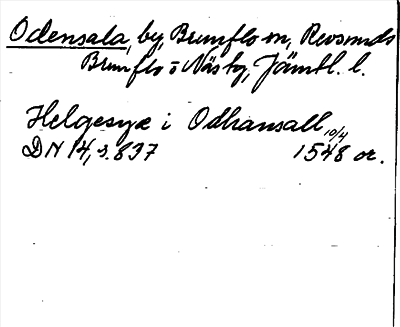 Odensala, by, Brunflo sn, Revsunds
Brunflo o Näsby, Jämtl. l.
Helgesyæ i Odhansall
DN 14, s. 837 10/4 1548 or.